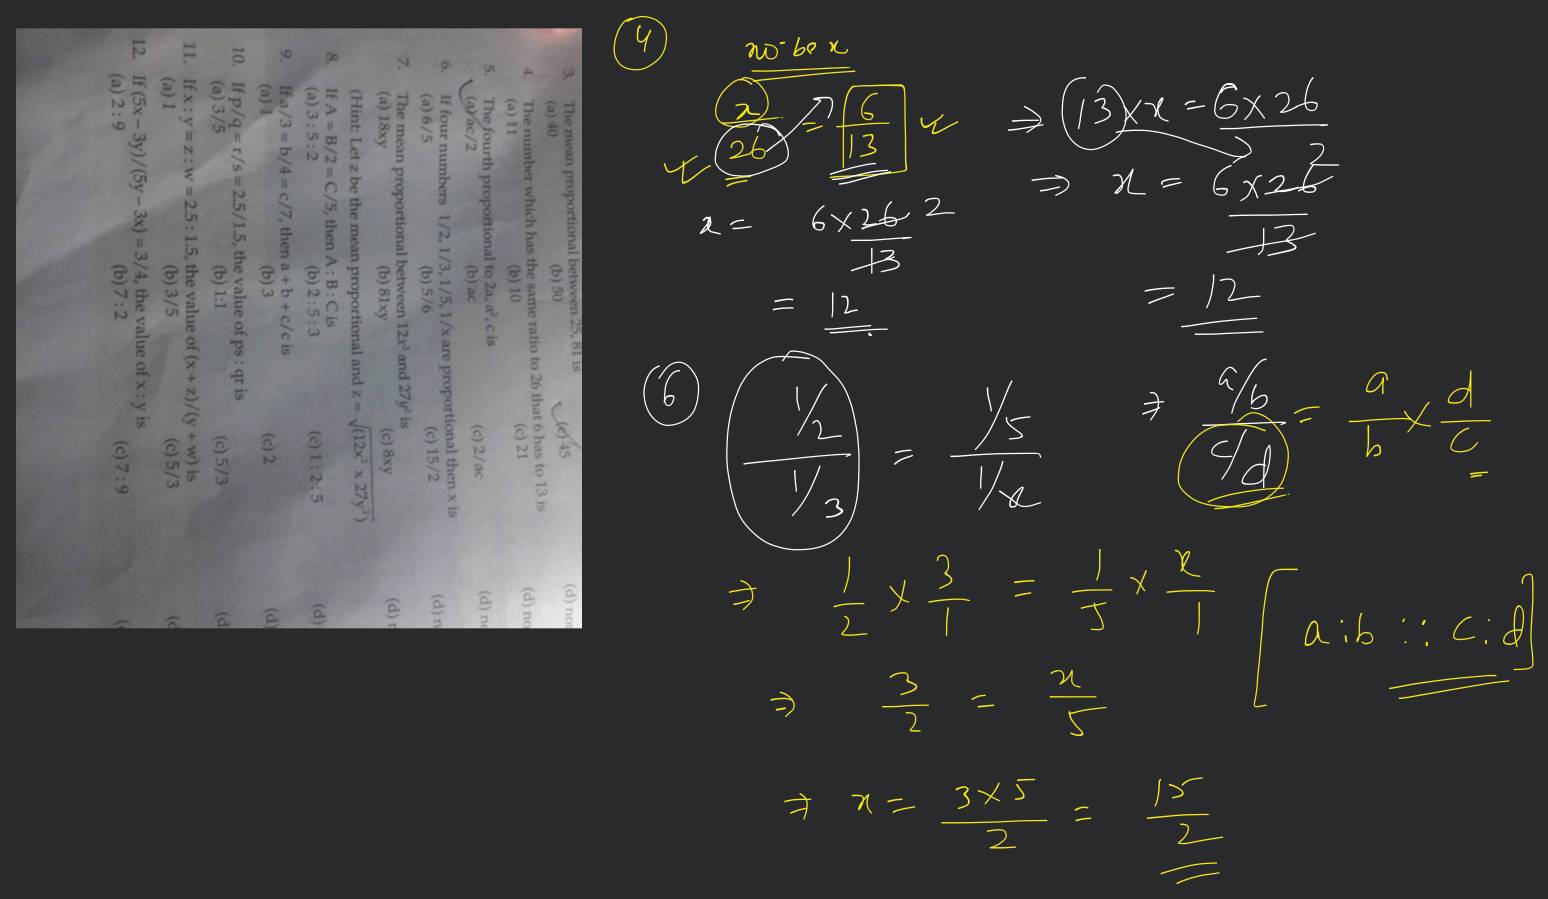 3. The mean proportional between 25, 81 is
(a) 40 (b) 50 (c) 45 (d) non
4. The number which has the same ratio to 26 that 6 has to 13 is
(a) 11 (b) 10 (c) 21 (d) no
5. The fourth proportional to 2a, a², c is
(a) ac/2 (b) ac (c) 2/ac (d) no
6. If four numbers 1/2, 1/3, 1/5, 1/x are proportional then x is
(a) 6/5 (b) 5/6 (c) 15/2 (d) n
7. The mean proportional between 12x² and 27y² is
(a) 18xy (b) 81xy (c) 8xy (d) r
(Hint: Let z be the mean proportional and z = √(12x² x 27y²)
8. If A = B/2 = C/5, then A : B : C is
(a) 3 : 5 : 2 (b) 2 : 5 : 3 (c) 1 : 2 : 5 (d)
9. If a/3 = b/4 = c/7, then a + b + c/c is
(a) 1 (b) 3 (c) 2 (d)
10. If p/q = r/s = 2.5/1.5, the value of ps : qr is
(a) 3/5 (b) 1:1 (c) 5/3 (d
11. If x : y = z : w = 2.5 : 1.5, the value of (x + z)/(y + w) is
(a) 1 (b) 3/5 (c) 5/3 (d
12. If (5x – 3y)/(5y – 3x) = 3/4, the value of x : y is
(a) 2 : 9 (b) 7 : 2 (c) 7 : 9 (
4
no. be x
x/26 = 6/13
x = 6 × 26 2 / 13
= 12
⇒ 13 × x = 6 × 26
⇒ x = 6 × 26 2 / 13
= 12
6
1/2 / 1/3 = 1/5 / 1/x
⇒ a/b / c/d = a/b × d/c
⇒ 1/2 × 3/1 = 1/5 × x/1
[a : b :: c : d]
⇒ 3/2 = x/5
⇒ x = 3 × 5 / 2 = 15/2